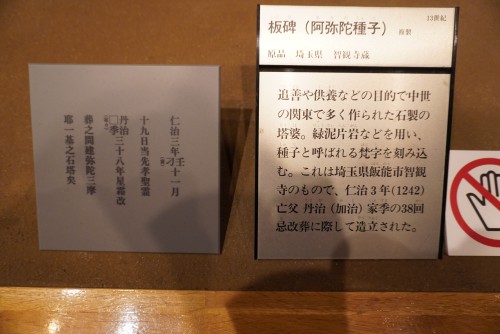 板碑（阿弥陀種子） 複製
13世紀
原品 埼玉県 智観寺蔵
追善や供養などの目的で中世
の関東で多く作られた石製の
塔婆。緑泥片岩などを用い、
種子と呼ばれる梵字を刻み込
む。これは埼玉県飯能市智観
寺のもので、仁治3年(1242)
亡父 丹治（加治）家季の38回
忌改葬に際して造立された。
仁治三年壬十一月
十九日当先孝聖霊
丹治□季三十八年星霜改
葬之間建弥陀三摩
耶一基之石塔矣